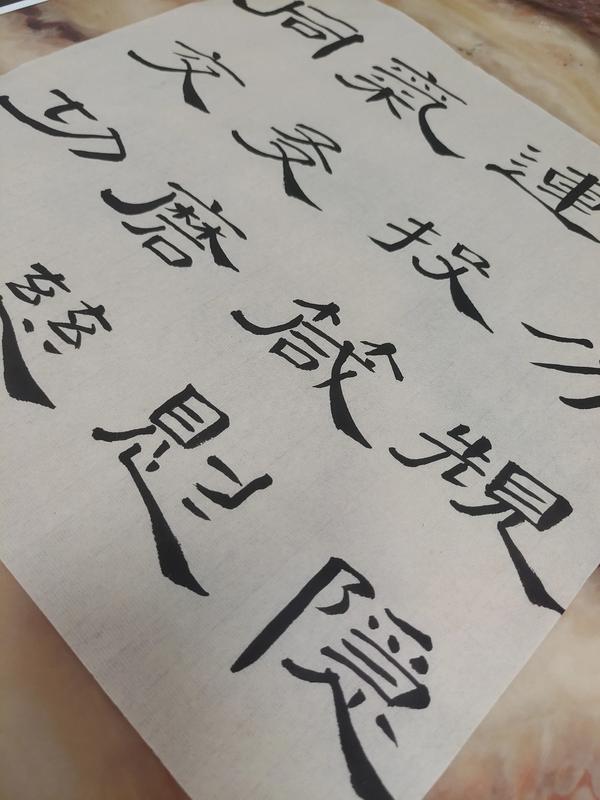 同氣連
交友投分
切磨箴規
慈惻隱